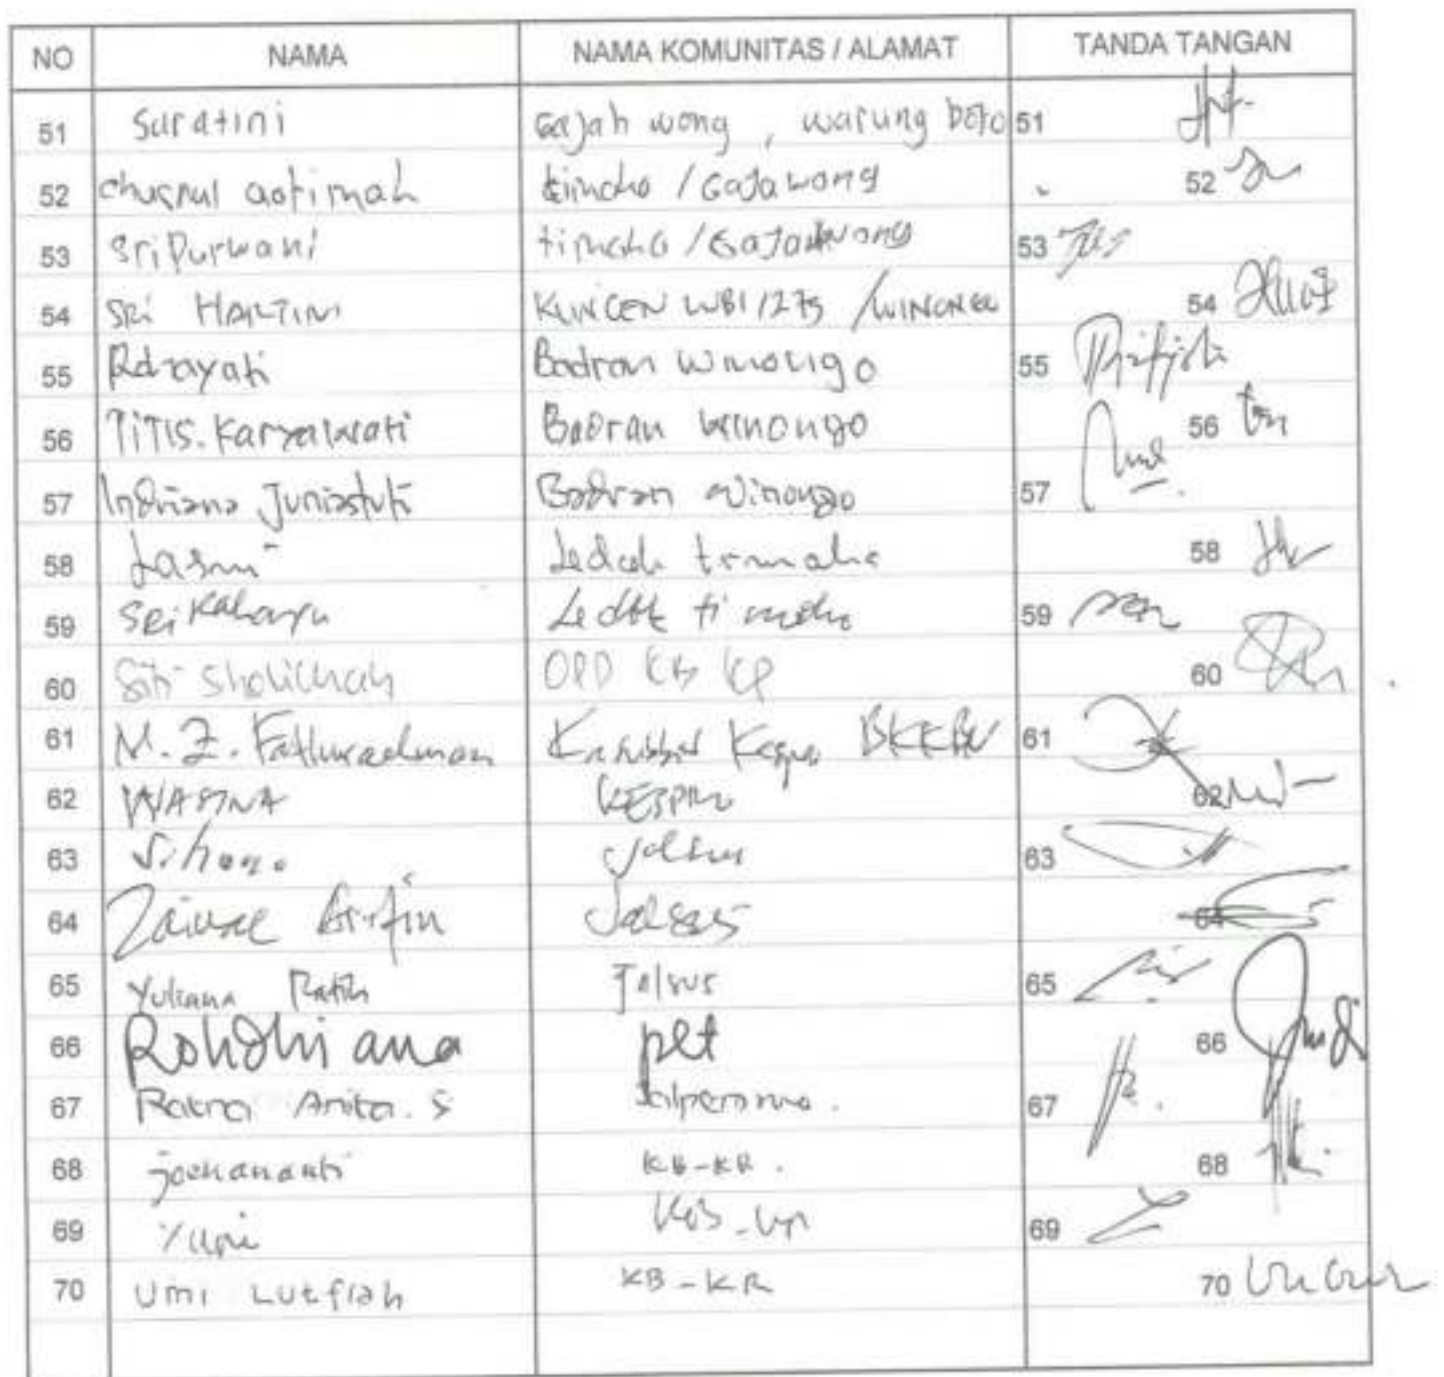 NO NAMA NAMA KOMUNITAS / ALAMAT TANDA TANGAN
51 Suratini Gajah wong, warung boto 51
52 chusnul qotimah timoho / Gajawong 52
53 Sri Purwani timoho / Gajahwong 53
54 SRi HARTINI KUNCEN WB1/275 / WINONGO 54
55 Badran Winongo 55
56 TiTIS. Karyawati Badran Winongo 56
57 Indriana Juniastuti Badran Winongo 57
58 Ledok timoho 58
59 Sri Rahayu Ledok timoho 59
60 Siti Sholikhah OPD KB KP 60
61 M. Z. Fathurachman BKKBN 61
62 62
63 63
64 Arifin Jalsus 64
65 Yuliana Ratih Jalsus 65
66 Rohdhiana plt 66
67 Ratna Anita. S 67
68 KB-KR. 68
69 Yupi 69
70 Umi Lutfiah KB-KR 70